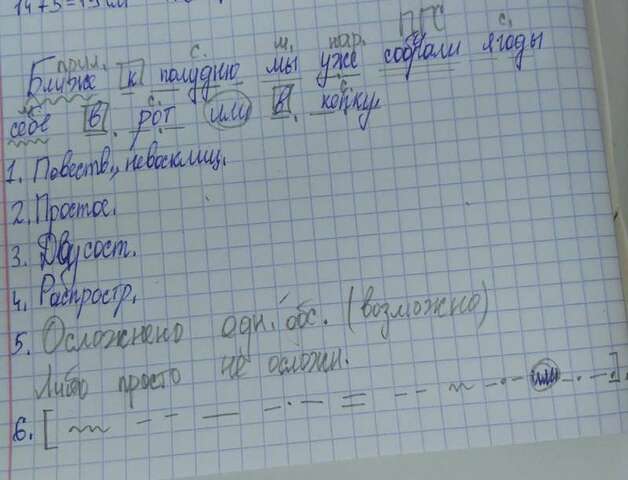 14+5=19
прил. с. м. нар. ПГС с.
Ближе к полудню мы уже собрали ягоды
м. с. с.
себе в рот или в копку.
1. Повеств., невосклиц.
2. Простое.
3. Двусост.
4. Распростр.
5. Осложнено одн. обс. (возможно)
Либо просто не осложн.
6. [ или ].